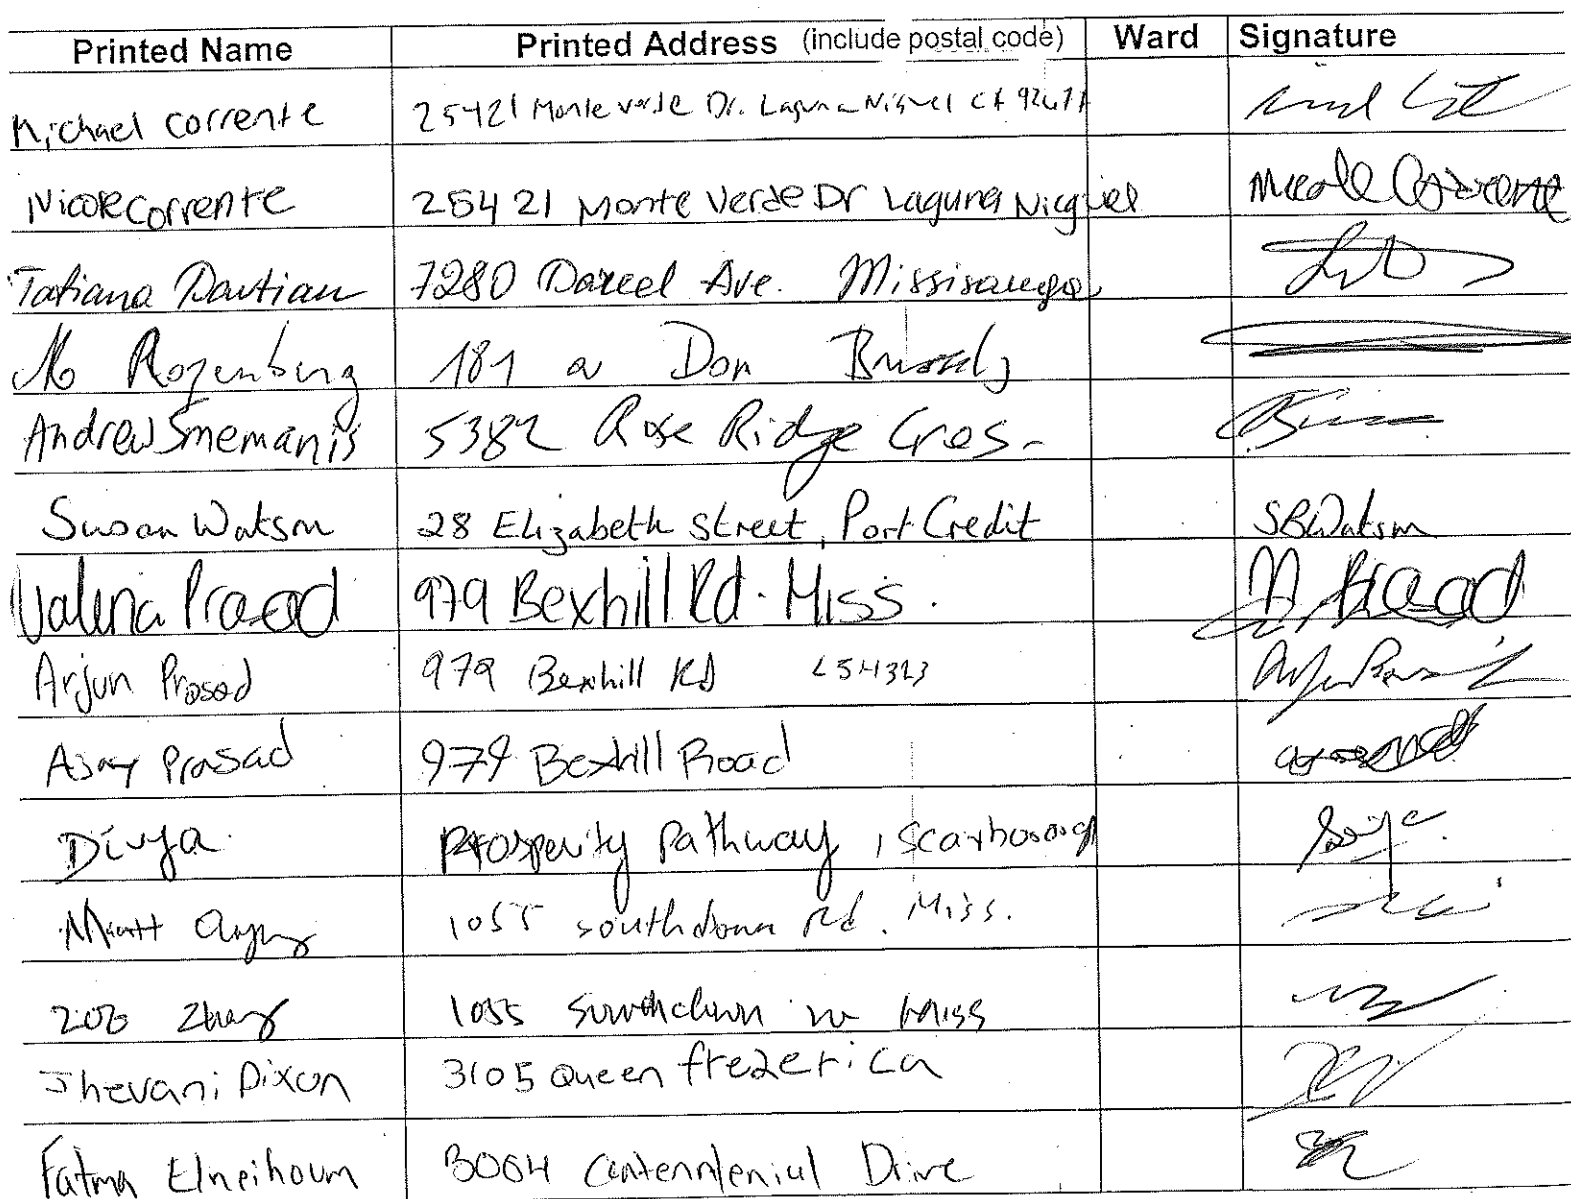 Printed Name Printed Address (include postal code) Ward Signature
Michael Corrente 25421 Monte Verde Dr. Laguna Niguel CA 92677
Nicole Corrente 25421 Monte Verde Dr Laguna Nicguel Nicole Corrente
Tatiana Davtian 7280 Darcel Ave. Mississauga
Rozenberg 181 Don
Andrew Smemanis 5382 Rose Ridge Cres.
Susan Watson 28 Elizabeth Street, Port Credit SBWatson
Valeria Prasad 979 Bexhill Rd. Miss. Prasad
Arjun Prasad 979 Bexhill Rd
Ajay Prasad 979 Bexhill Road
Divya Prosperity Pathway, Scarboroug
Matt 1055 southdown Rd. Miss.
Zhang 1055 Southdown Miss
Shevani Dixon 3105 Queen frederica
Fatma Elneihoum 3004 Centennial Drive